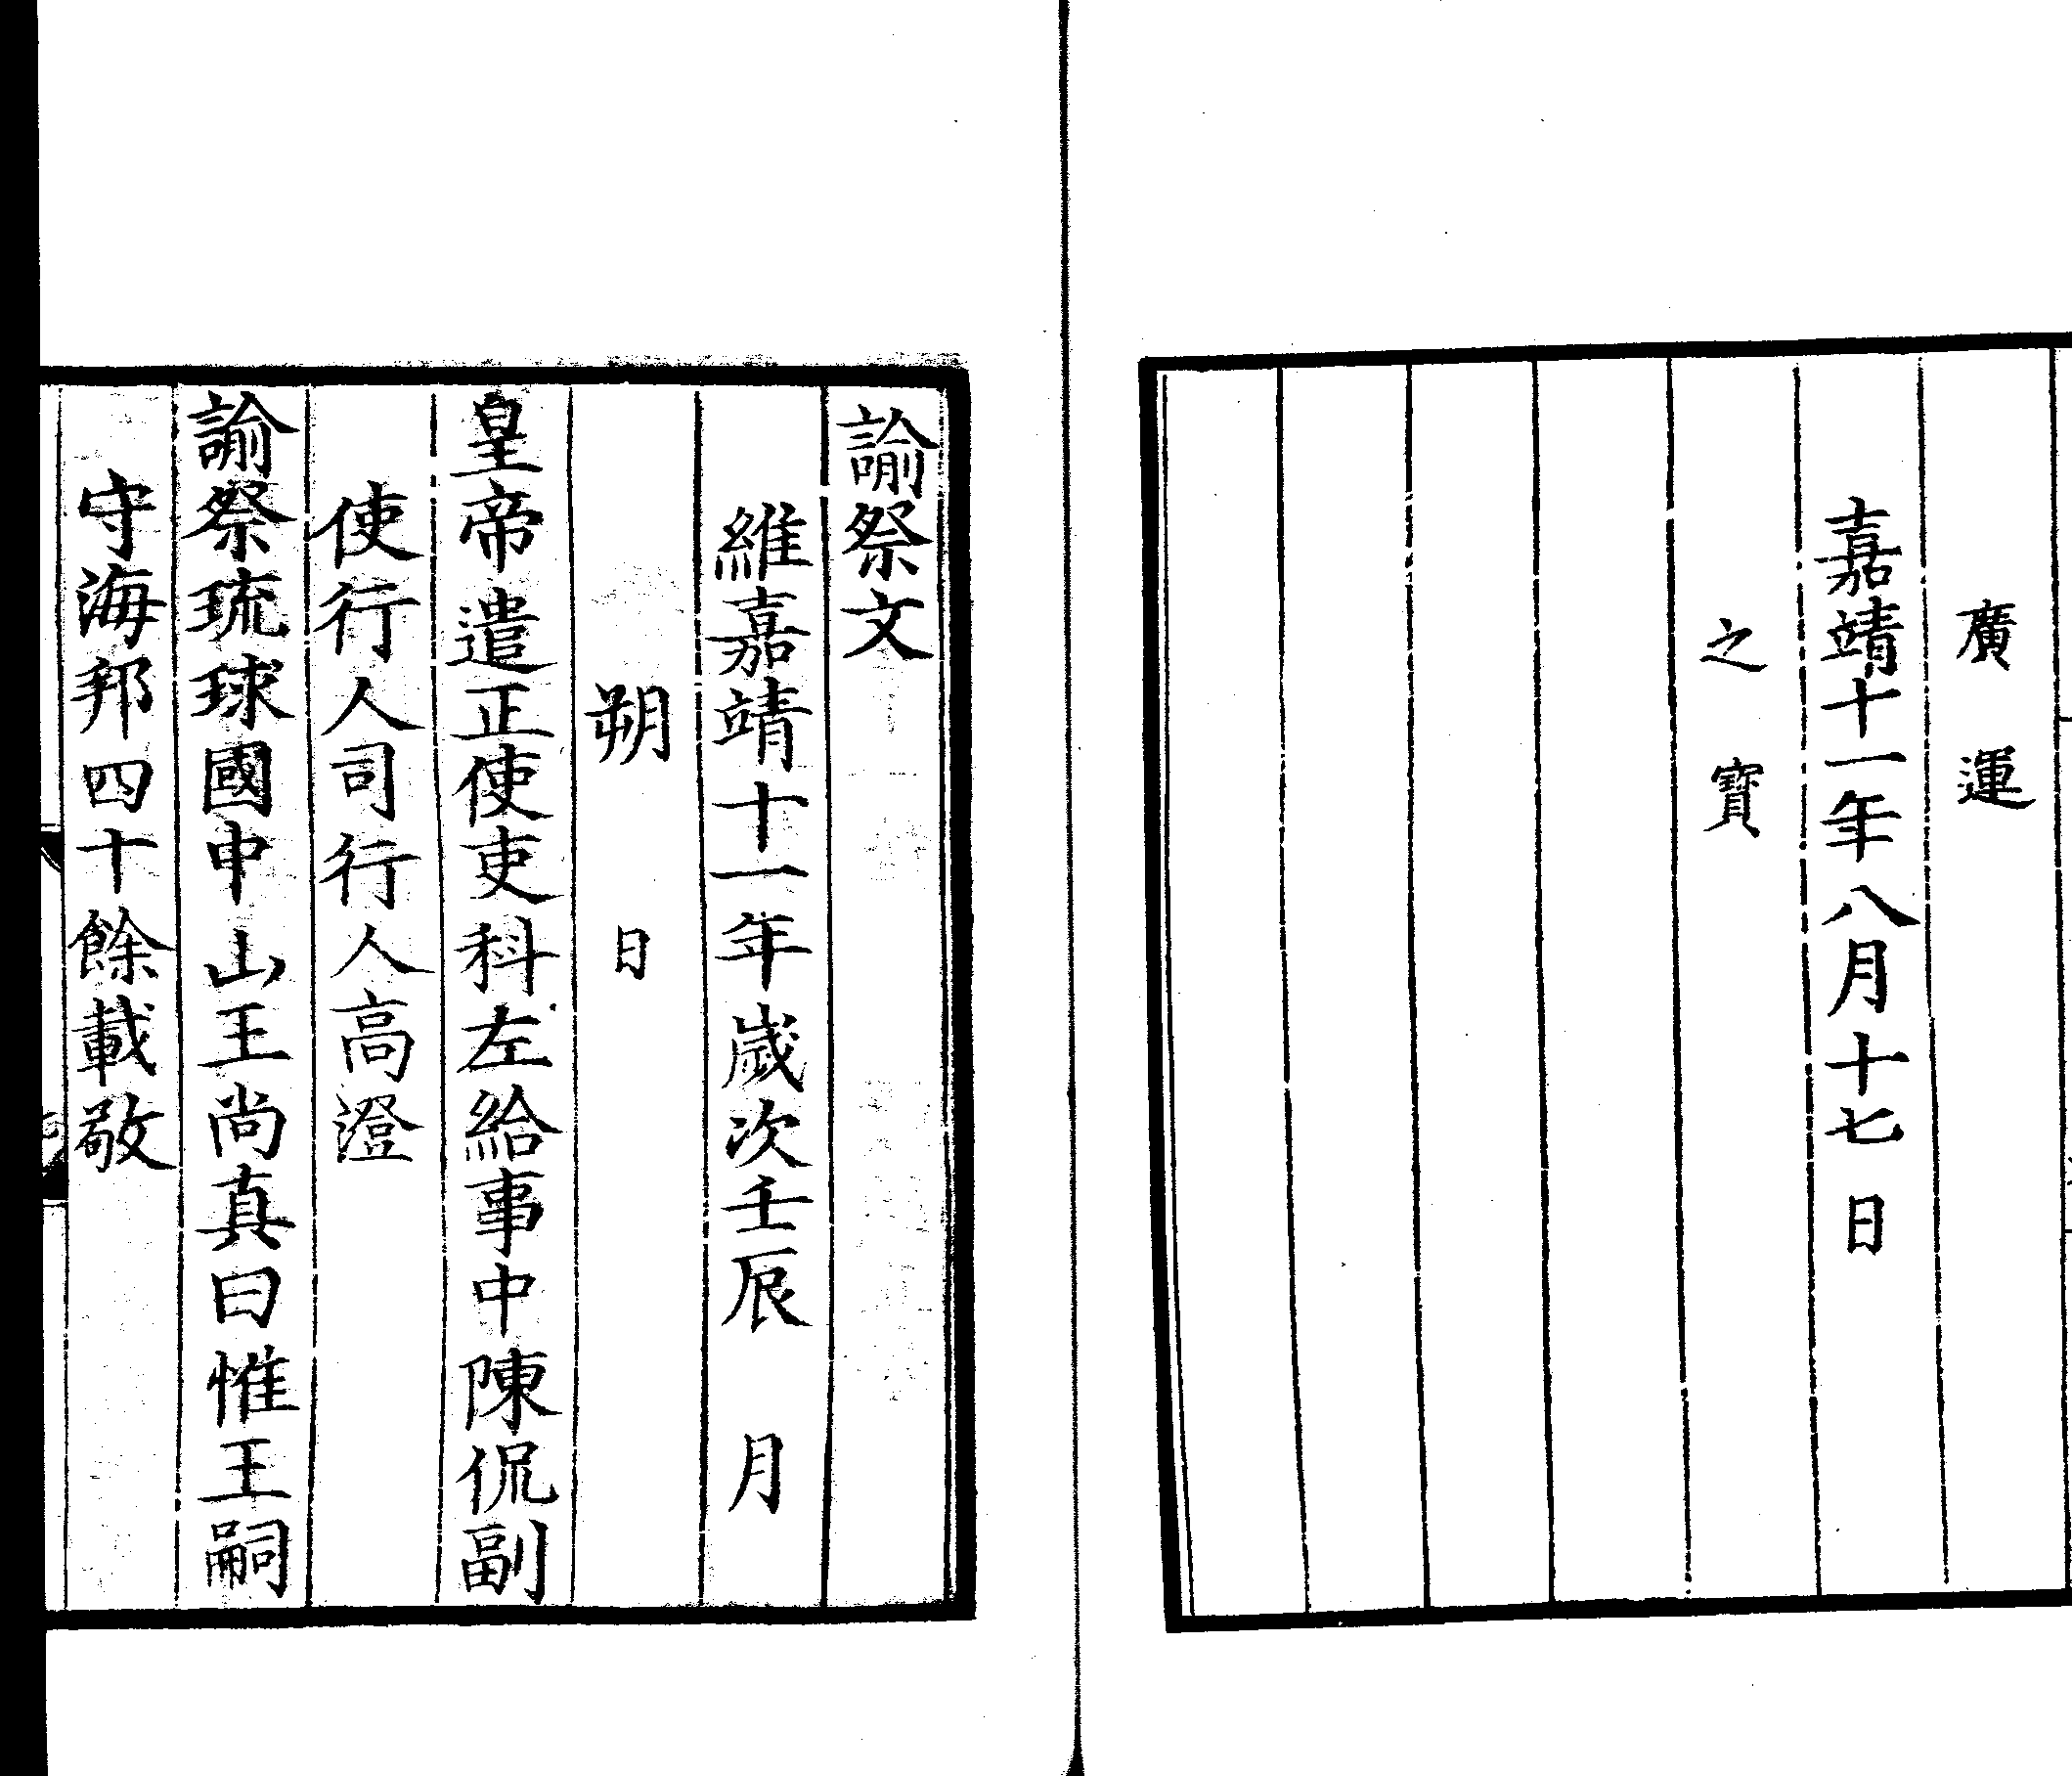 廣運
嘉靖十一年八月十七日
之寶
諭祭文
維嘉靖十一年歲次壬辰月
朔日
皇帝遣正使吏科左給事中陳侃副
使行人司行人高澄
諭祭琉球國中山王尚真曰惟王嗣
守海邦四十餘載敬